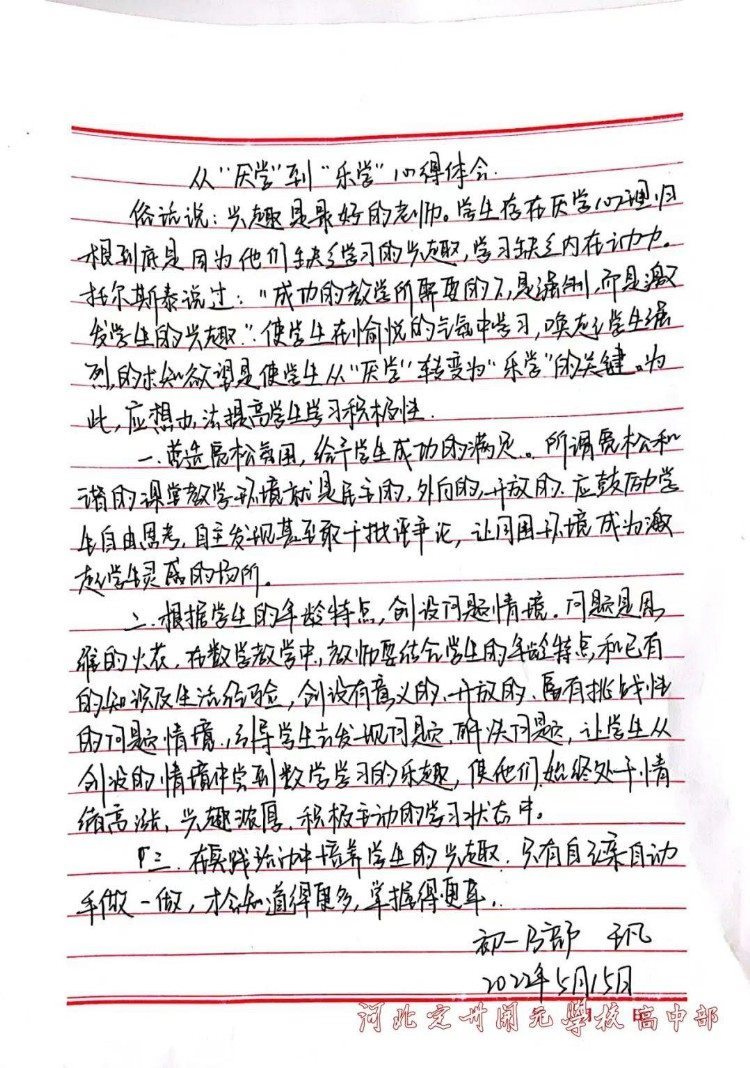 从“厌学”到“乐学”心得体会.
俗话说：兴趣是最好的老师。学生存在厌学心理归
根到底是因为他们缺乏学习的兴趣，学习缺乏内在动力。
托尔斯泰说过：“成功的教学所需要的不是强制，而是激
发学生的兴趣”。使学生在愉悦的气氛中学习，唤起学生强
烈的求知欲望是使学生从“厌学”转变为“乐学”的关键。为
此，应想办法提高学生学习积极性.
一.营造宽松氛围，给予学生成功的满足。所谓宽松和
谐的课堂教学环境就是民主的，外向的，开放的.应鼓励学
生自由思考，自主发现甚至敢于批评争论，让周围环境成为激
起学生灵感的场所。
二.根据学生的年龄特点，创设问题情境.问题是思
维的火花，在数学教学中，教师要结合学生的年龄特点和已有
的知识及生活经验，创设有意义的、开放的、富有挑战性
的问题情境，引导学生去发现问题、解决问题，让学生从
创设的情境中尝到数学学习的乐趣，使他们始终处于情
绪高涨、兴趣浓厚、积极主动的学习状态中。
三.在实践活动中培养学生的兴趣.只有自己亲自动
手做一做，才会知道得更多，掌握得更牢.
初一 部 王凡
2022年5月15日
河北定州开元学校高中部